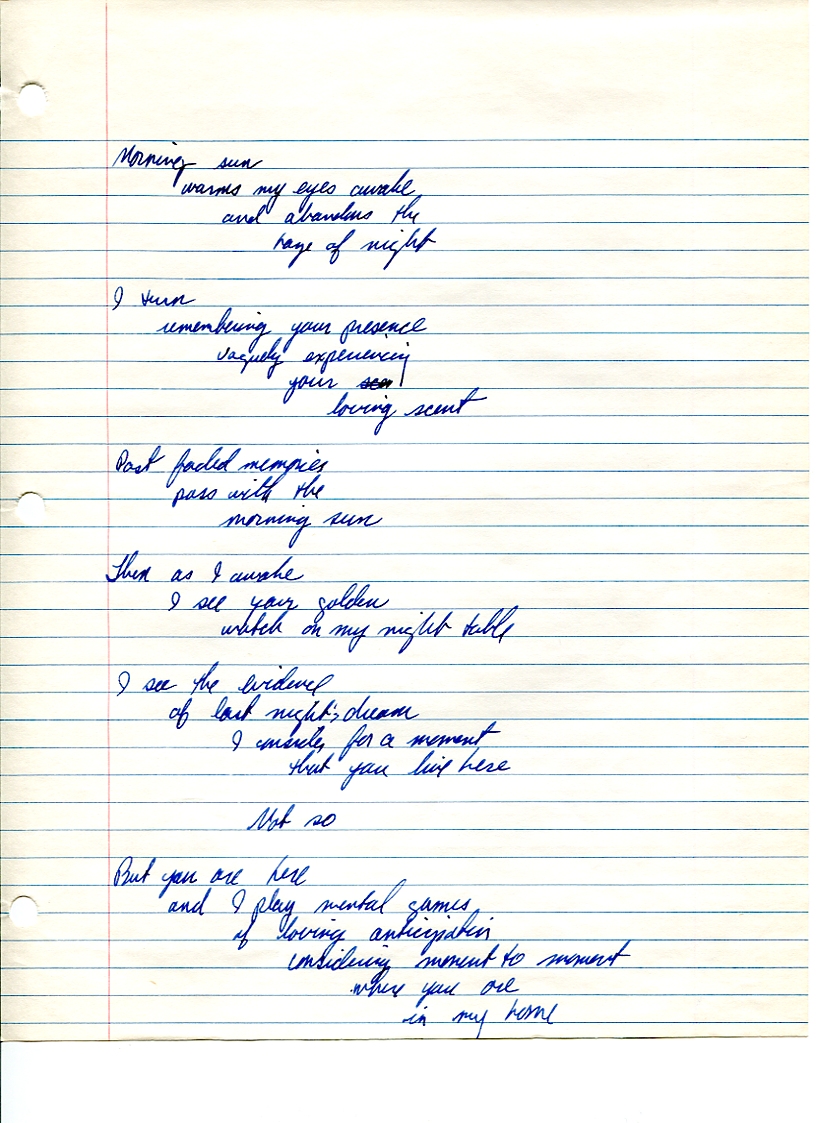 Morning sun
warms my eyes awake
and abandons the
haze of night
I turn
remembering your presence
vaguely experiencing
your
loving scent
Past faded memories
pass with the
morning sun
Then as I awake
I see your golden
watch on my night table
I see the evidence
of last night's dream
I consider for a moment
that you live here
Not so
But you are here
and I play mental games
of loving anticipation
considering moment to moment
where you are
in my home